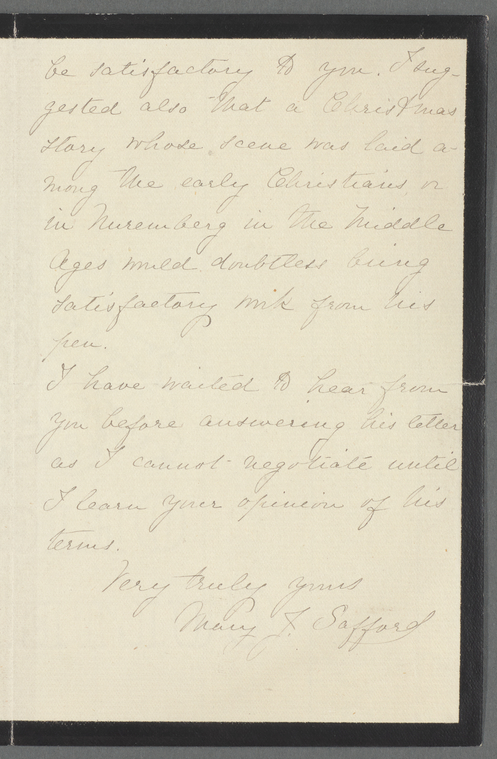 be satisfactory to you. I sug-
gested also that a Christmas
story whose scene was laid a-
mong the early Christians, or
in Nuremberg in the Middle
Ages would doubtless bring
satisfactory work from his
pen.
I have waited to hear from
you before answering his letter
as I cannot negotiate until
I learn your opinion of his
terms.
Very truly yours
Mary J. Safford